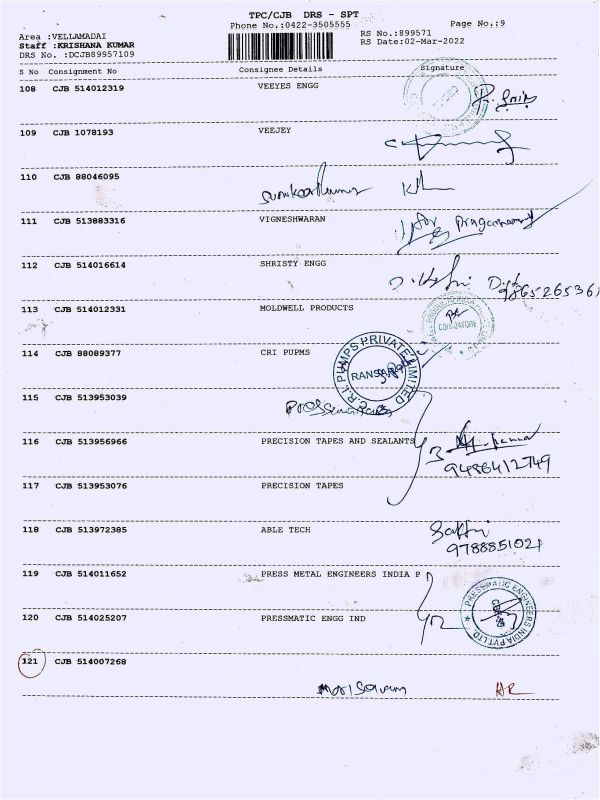 TPC/CJB DRS - SPT
Phone No.:0422-3505555
Page No.:9
Area :VELLAMADAI
Staff :KRISHANA KUMAR
DRS No. :DCJB89957109
RS No.:899571
RS Date:02-Mar-2022
S No Consignment No Consignee Details Signature
108 CJB 514012319 VEEYES ENGG
109 CJB 1078193 VEEJEY
110 CJB 88046095
111 CJB 513883316 VIGNESHWARAN
112 CJB 514016614 SHRISTY ENGG
9865265361
113 CJB 514012331 MOLDWELL PRODUCTS
COIMBATORE
114 CJB 88089377 CRI PUPMS
C.R.I. PUMPS PRIVATE LIMITED
115 CJB 513953039
116 CJB 513956966 PRECISION TAPES AND SEALANTS
3
9486412749
117 CJB 513953076 PRECISION TAPES
118 CJB 513972385 ABLE TECH
Sakthi
9788851021
119 CJB 514011652 PRESS METAL ENGINEERS INDIA P
120 CJB 514025207 PRESSMATIC ENGG IND
PRESSMATIC ENGINEERS INDIA PVT LTD
121 CJB 514007268